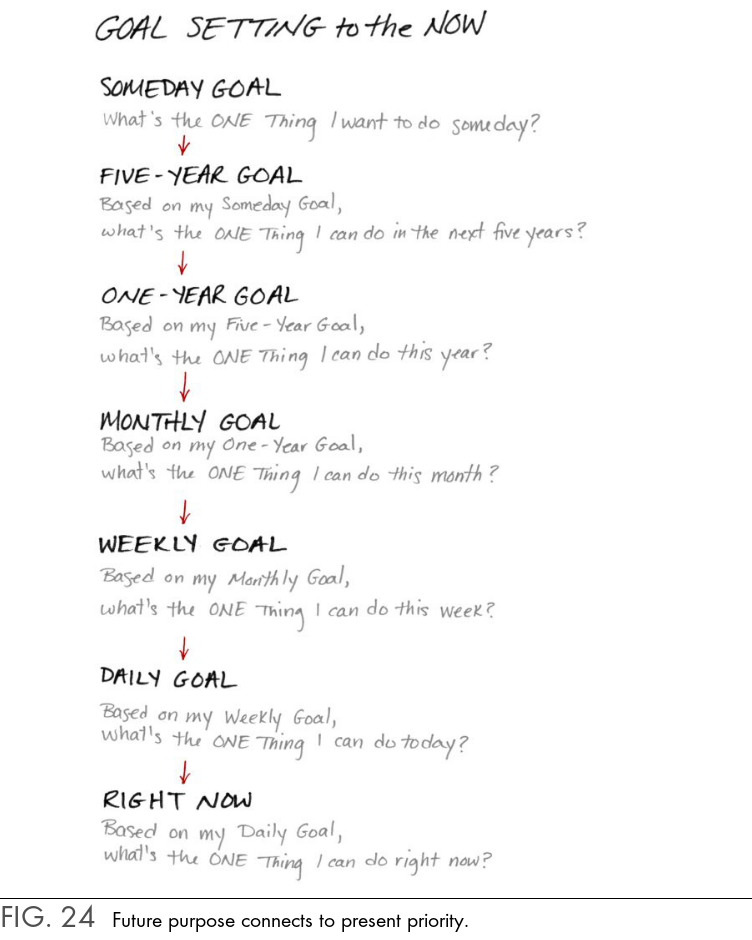 GOAL SETTING to the NOW
SOMEDAY GOAL
What's the ONE Thing I want to do someday?
FIVE-YEAR GOAL
Based on my Someday Goal,
what's the ONE Thing I can do in the next five years?
ONE-YEAR GOAL
Based on my Five-Year Goal,
what's the ONE Thing I can do this year?
MONTHLY GOAL
Based on my One-Year Goal,
what's the ONE Thing I can do this month?
WEEKLY GOAL
Based on my Monthly Goal,
what's the ONE Thing I can do this week?
DAILY GOAL
Based on my Weekly Goal,
what's the ONE Thing I can do today?
RIGHT NOW
Based on my Daily Goal,
what's the ONE Thing I can do right now?
FIG. 24 Future purpose connects to present priority.